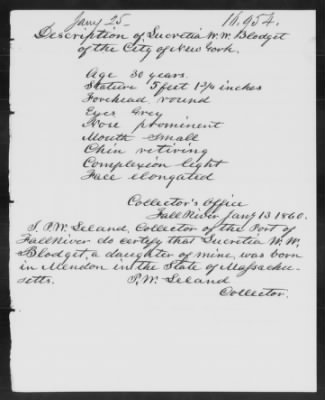 Jany 25 - 16,954.
Description of Lucretia W. W. Blodget
of the City of New York.
Age 30 years.
Stature 5 feet 1 3/4 inches
Forehead round
Eyes Grey
Nose prominent
Mouth Small
Chin retiring
Complexion light
Face elongated
Collector's Office
Fall River Jany 13 1860.
I, P. W. Leland, Collector of the Port of
Fall River do certify that Lucretia W. W.
Blodget, a daughter of mine, was born
in Mendon in the State of Massachu-
setts. P. W. Leland
Collector.